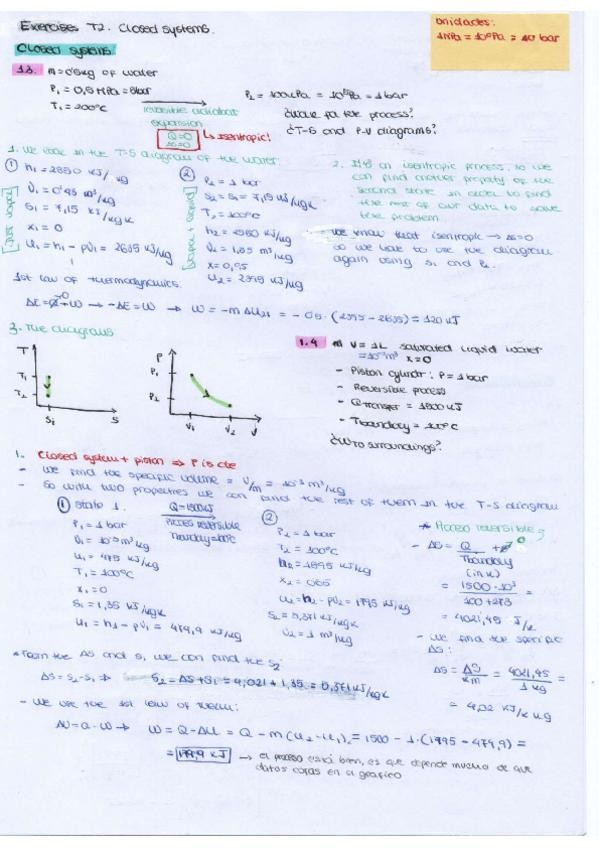 Exercises T2. Closed systems.
Unidades:
1MPa = 10⁶Pa = 10 bar
Closed systems
1.3. m = 0'5kg of water
P₁ = 0,8 MPa = 8bar
T₁ = 200ºC
reversible adiabatic
expansion
Q=0
Δs=0
↳ isentropic!
P₂ = 100kPa = 10⁵Pa = 1 bar
¿Work for the process?
¿T-S and P-V diagrams?
1. We look in the T-S diagram of the water:
① h₁ = 2850 kJ/kg
s₁ = 7,15 kJ/kgK
x₁ = 0
u₁ = h₁ - pv₁ = 2635 kJ/kg
② P₂ = 1 bar
s₂ = s₁ = 7,15 kJ/kgK
T₂ = 100ºC
x = 0,95
u₂ = 2395 kJ/kg
2. It's an isentropic process, so we
can find another property of the
second state in order to find
the rest of our data to solve
the problem.
We know that isentropic → Δs=0
so we have to use the diagram
again using s₁ and P₂.
1st law of thermodynamics:
→ -ΔE = W → W = -m Δu₂₁ = -0'5·(2395-2635) = 120 kJ
3. The diagrams
T
T₁
T₂
S₁
S
P
P₁
P₂
V₁
V₂
V
1.4 V = 1L saturated liquid water
= 10⁻³m³ x=0
- Piston cylindr: P = 1 bar
- Reversible process
- Qtransfer = 1500 kJ
- Tboundary = 100ºC
¿W to surroundings?
1. Closed system + piston ⇒ P is cte
- We find the specific volume = V/m = 10⁻³ m³/kg
- So with two properties we can find the rest of them in the T-S diagram
① State 1.
P₁ = 1 bar
v₁ = 10⁻³ m³/kg
T₁ = 100ºC
x₁ = 0
s₁ = 1,35 kJ/kgK
u₁ = h₁ - pv₁ = 474,9 kJ/kg
Q = 1500 kJ
Process reversible
Tboundary = 100ºC
②
P₂ = 1 bar
T₂ = 100ºC
h₂ = 1895 kJ/kg
x₂ = 0'65
u₂ = h₂ - pv₂ = 1795 kJ/kg
s₂ = 5,371 kJ/kgK
v₂ = 1 m³/kg
- ΔS = Q/Tboundary
(in K)
= 1500·10³/100+273 =
= 4021,45 J/K
- We find the specific
Δs:
= 4021,45/1 kg =
= 4,02 kJ/K kg
* From the Δs and s₁ we can find the s₂
Δs = s₂ - s₁ ⇒ s₂ = Δs + s₁ = 4,021 + 1,35 = 5,371 kJ/kgK
- We use the 1st law of thermo:
ΔU = Q - W ⇒ W = Q - ΔU = Q - m(u₂ - u₁) = 1500 - 1·(1795 - 474,9) =
= 179,9 kJ → el proceso está bien, es que depende mucho de que
datos cojas en el grafico